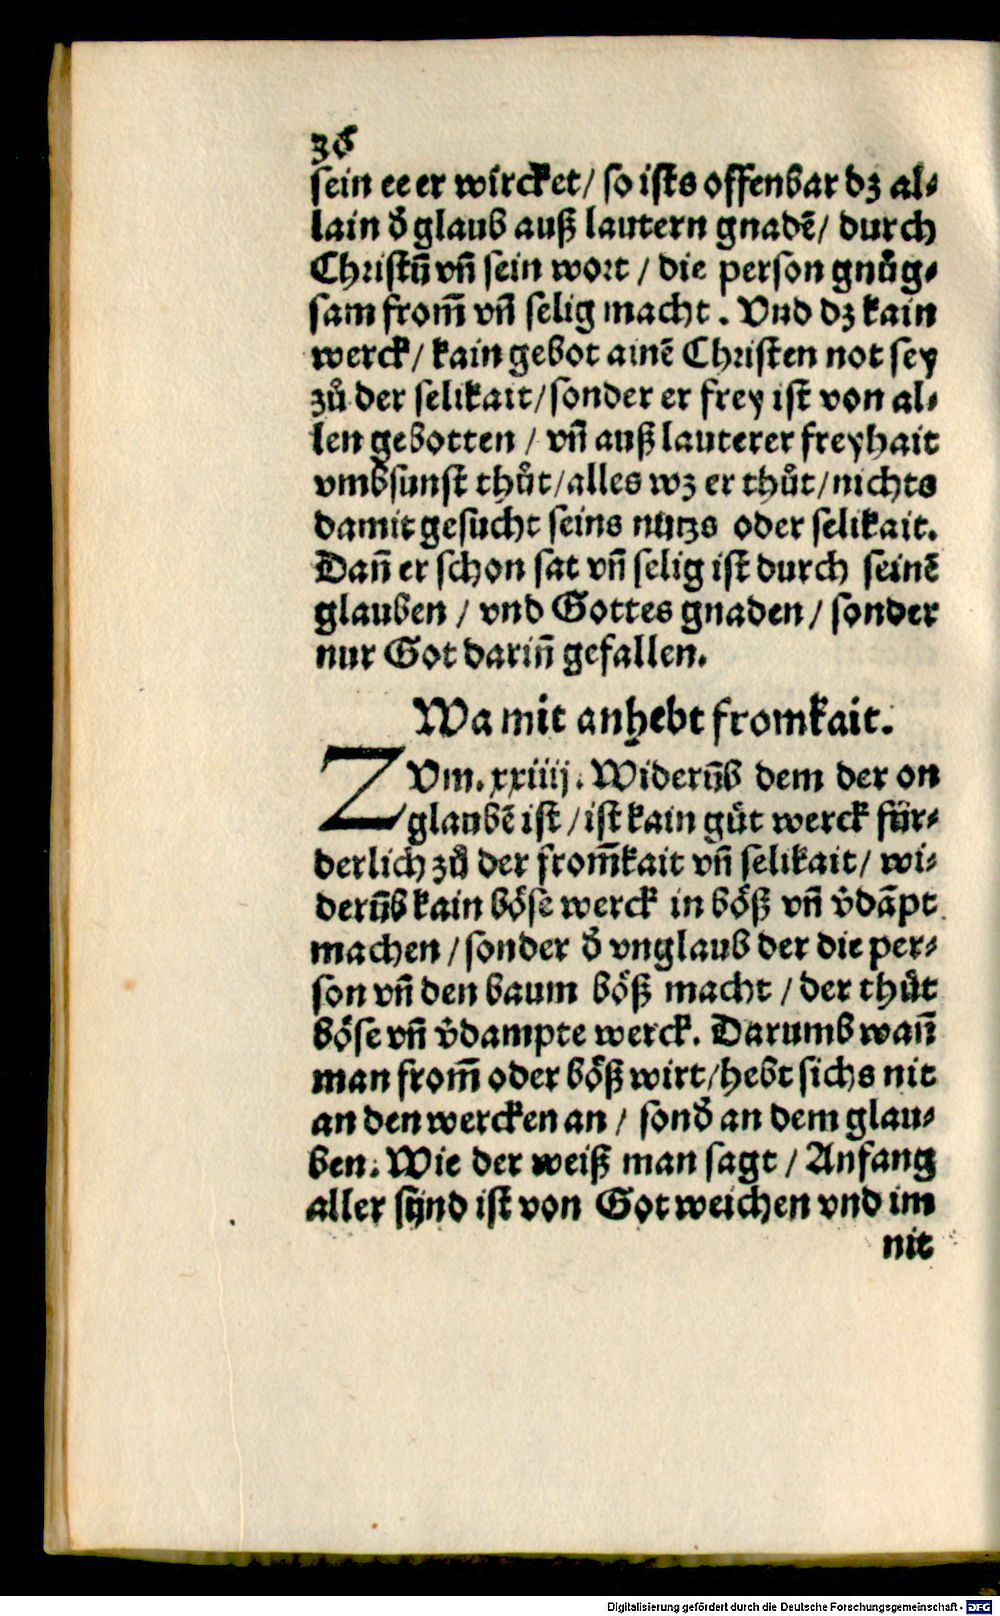 36
sein ee er wircket/ so ists offenbar dz al⸗
lain d̄ glaub auß lautern gnadē/ durch
Christū vn̄ sein wort / die person gnůg⸗
sam from̄ vn̄ selig macht . Vnd dz kain
werck/ kain gebot ainē Christen not sey
zů der selikait/sonder er frey ist von al⸗
len gebotten / vn̄ auß lauterer freyhait
vmbsunst thůt/alles wz er thůt/nichts
damit gesucht seins nutzs oder selikait.
Dan̄ er schon sat vn̄ selig ist durch seinē
glauben / vnd Gottes gnaden/ sonder
nur Got darin̄ gefallen.
Wa mit anhebt fromkait.
ZVm. xxiiij. Widerūb dem der on
glaubē ist /ist kain gůt werck für⸗
derlich zů der from̄kait vn̄ selikait/ wi⸗
derūb kain böse werck in böß vn̄ v̄dāpt
machen /sonder d̄ vnglaub der die per⸗
son vn̄ den baum böß macht /der thůt
böse vn̄ v̄dampte werck. Darumb wan̄
man from̄ oder böß wirt/hebt sichs nit
an den wercken an / sond̄ an dem glau⸗
ben. Wie der weiß man sagt / Anfang
aller sünd ist von Got weichen vnd im
nit
Digitalisierung gefördert durch die Deutsche Forschungsgemeinschaft - DFG